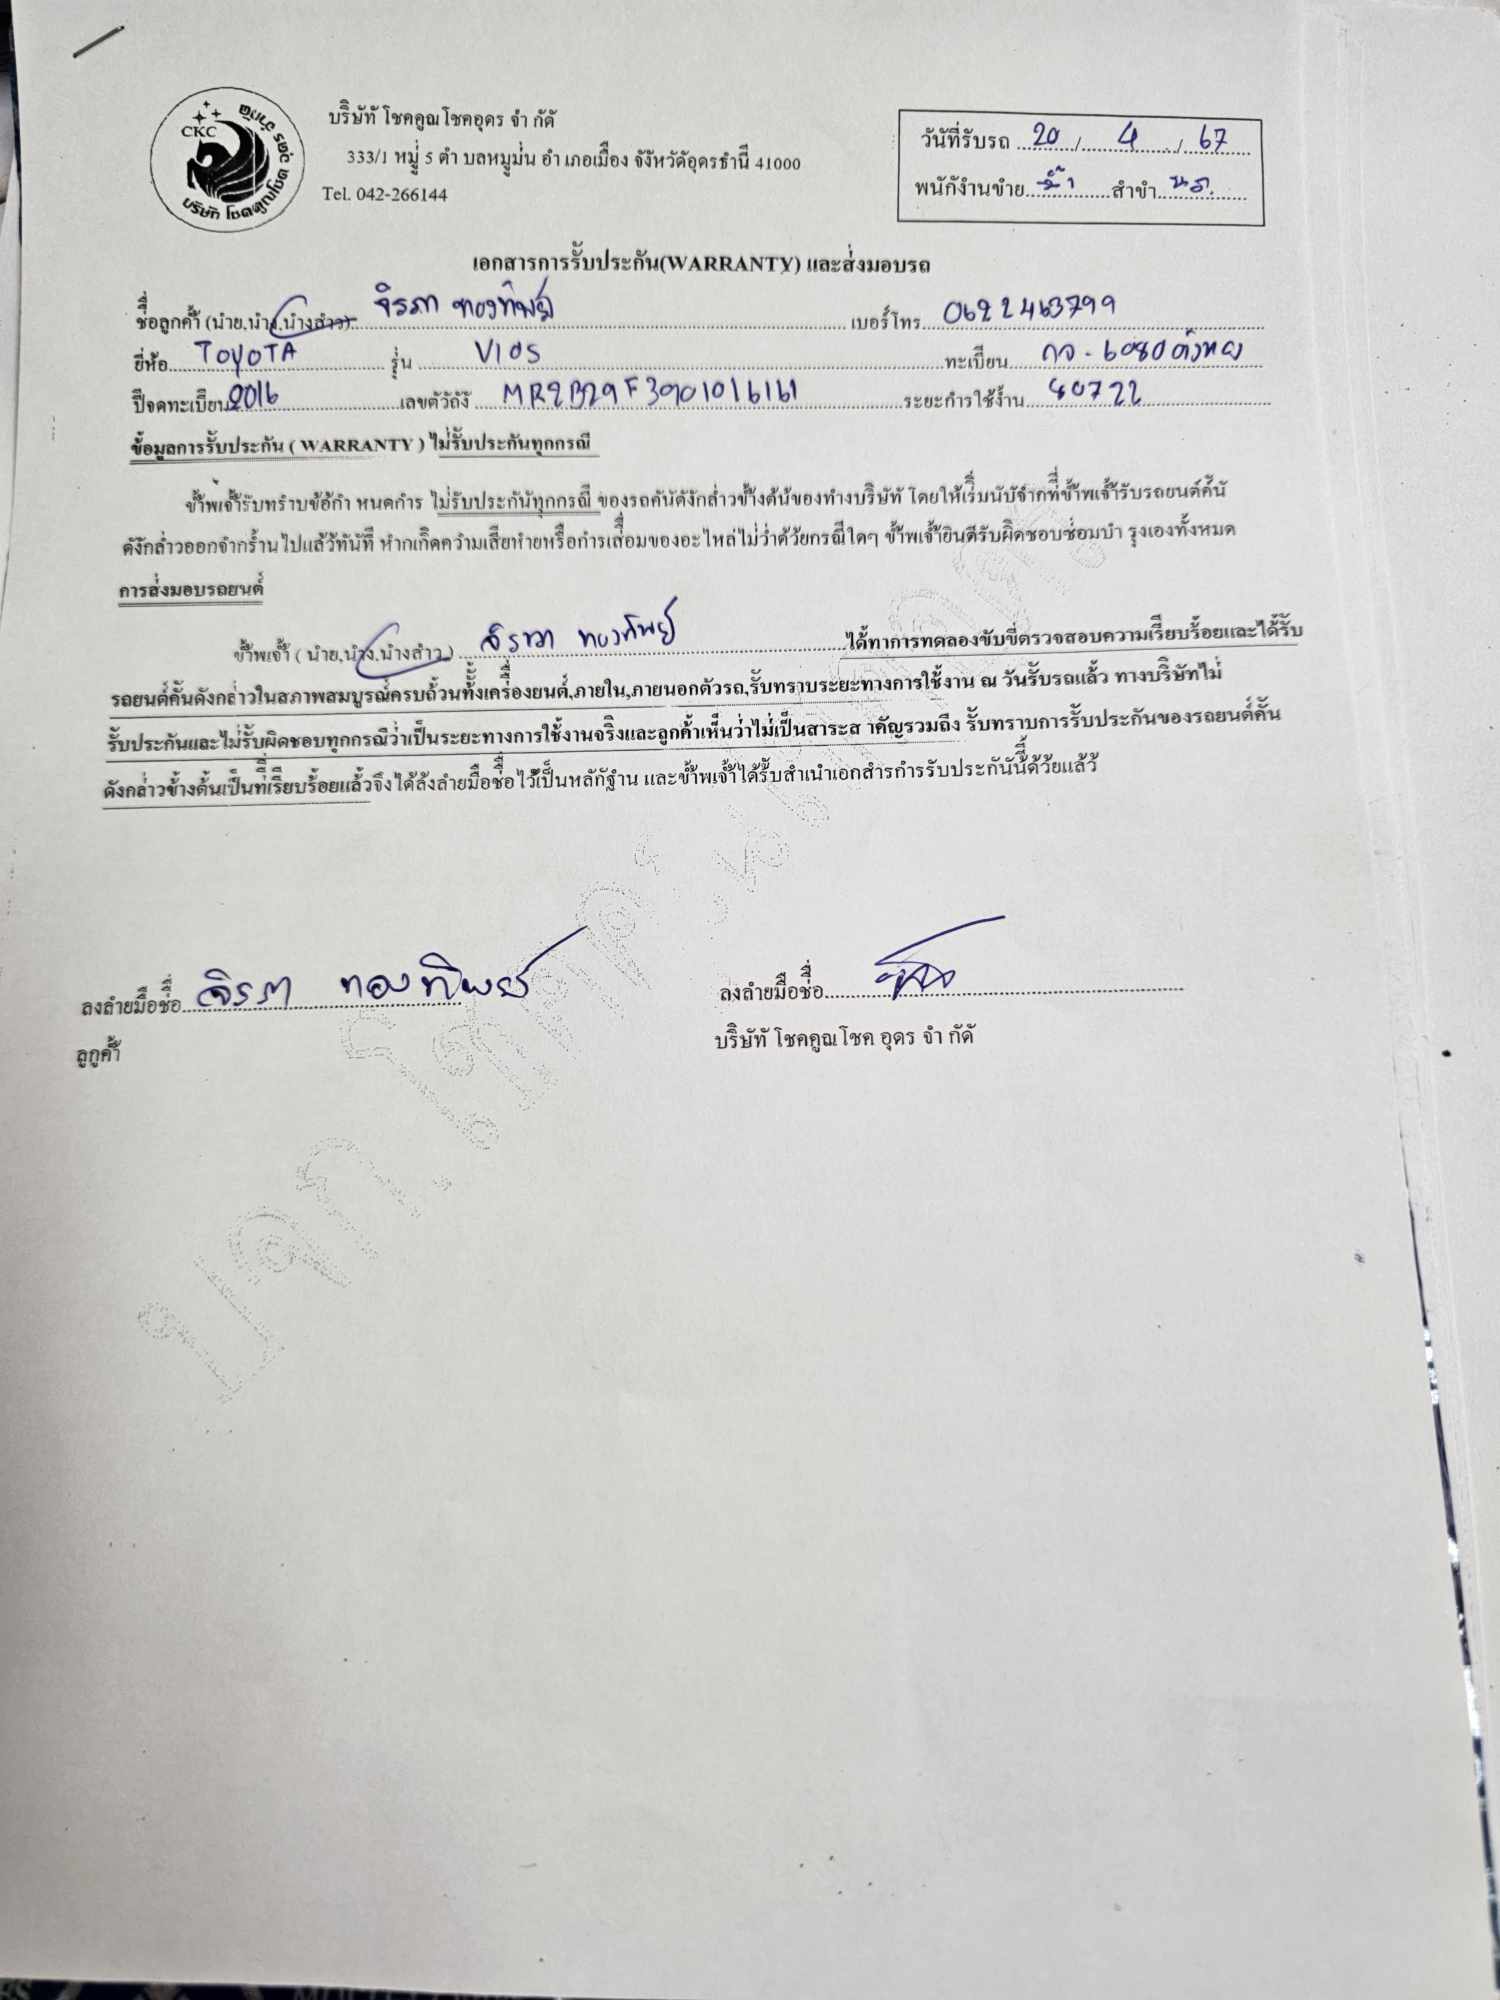 CKC
บริษัท โชคคูณโชค อุดร จำกัด
บริษัท โชคคูณโชคอุดร จำ กัด
333/1 หมู่ 5 ตำ บลหมูม่น อำ เภอเมือง จังหวัดอุดรธานี 41000
Tel. 042-266144
วันที่รับรถ 20 / 4 / 67
พนักงานขาย สาขา
เอกสารการรับประกัน(WARRANTY) และส่งมอบรถ
ชื่อลูกค้า (นาย,นาง,นางสาว) จิรภา ทองทิพย์ เบอร์โทร 0622463799
ยี่ห้อ TOYOTA รุ่น VIOS ทะเบียน กจ - 6080
ปีจดทะเบียน 2016 เลขตัวถัง MR2B29F3901016161 ระยะการใช้งาน 80722
ข้อมูลการรับประกัน ( WARRANTY ) ไม่รับประกันทุกกรณี
ข้าพเจ้ารับทราบข้อกำ หนดการ ไม่รับประกันทุกกรณี ของรถคันดังกล่าวข้างต้นของทางบริษัท โดยให้เริ่มนับจากที่ข้าพเจ้ารับรถยนต์คัน
ดังกล่าวออกจากร้านไปแล้วทันที หากเกิดความเสียหายหรือการเสื่อมของอะไหล่ไม่ว่าด้วยกรณีใดๆ ข้าพเจ้ายินดีรับผิดชอบซ่อมบำ รุงเองทั้งหมด
การส่งมอบรถยนต์
ข้าพเจ้า ( นาย,นาง,นางสาว ) จิรภา ทองทิพย์ ได้ทาการทดลองขับขี่ตรวจสอบความเรียบร้อยและได้รับ
รถยนต์คันดังกล่าวในสภาพสมบูรณ์ครบถ้วนทั้งเครื่องยนต์,ภายใน,ภายนอกตัวรถ,รับทราบระยะทางการใช้งาน ณ วันรับรถแล้ว ทางบริษัทไม่
รับประกันและไม่รับผิดชอบทุกกรณีว่าเป็นระยะทางการใช้งานจริงและลูกค้าเห็นว่าไม่เป็นสาระส าคัญรวมถึง รับทราบการรับประกันของรถยนต์คัน
ดังกล่าวข้างต้นเป็นที่เรียบร้อยแล้วจึงได้ลงลายมือชื่อไว้เป็นหลักฐาน และข้าพเจ้าได้รับสำเนาเอกสารการรับประกันนี้ด้วยแล้ว
ลงลายมือชื่อ จิรภา ทองทิพย์ ลงลายมือชื่อ
ลูกค้า บริษัท โชคคูณโชค อุดร จำ กัด